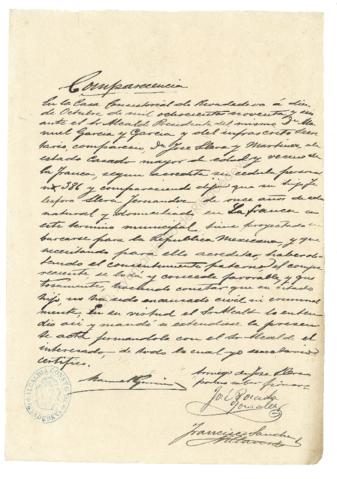 Comparecencia
En la Casa Consistorial de Ribadedeva á
de Octubre de mil ochocientos noventa y
ante el Sr Alcalde Presidente del mismo Dn Ma-
nuel Garcia y Garcia y del infrascrito Secre-
tario, comparecen Dn Jose Llera y Martinez, de
estado Casado mayor de edad y vecino de
la Franca, segun acredita su cedula personal
386 y compareciendo dijo: que su hijo
Llera Fernandez de once años de edad
natural y domiciliado en La Franca en
este termino municipal, tiene proyectado em-
barcarse para la Republica Mexicana, y que
necesitando para ello acreditar, haber ob-
tenido el consentimiento paterno el compa-
reciente se lo dá y concede favorable, y gus-
tosamente, haciendo constar que su citado
hijo, no ha sido encausado civil ni criminal-
mente. En su virtud el Sr Alcalde lo enten-
dio asi y mandó se extendiese la presen-
te acta firmandola con el Sr Alcalde el
interesado, de todo lo cual yo secretario
certifico.
Manuel Garcia
Amigo de Jose Llera
por no saber firmar
José
Gonzalez
Francisco Sanchez